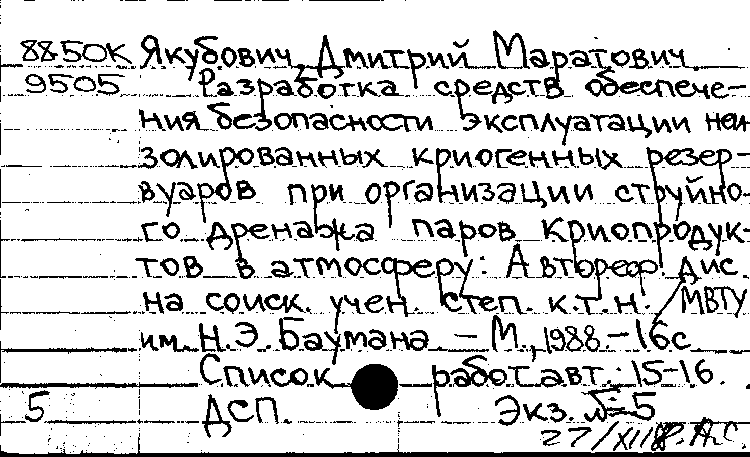 8850К Якубович, Дмитрий Маратович.
9505 Разработка средств обеспече-
ния безопасности эксплуатации неи
золированных криогенных резер-
вуаров при организации струйно-
го дренажа паров криопродук-
тов в атмосферу: Автореф. дис.
на соиск. учен. степ. к.т.н. / МВТУ
им. Н.Э. Баумана. – М., 1988. – 16с.
Список работ авт.: 15-16.
5 ДСП. Экз. №5
27/XII